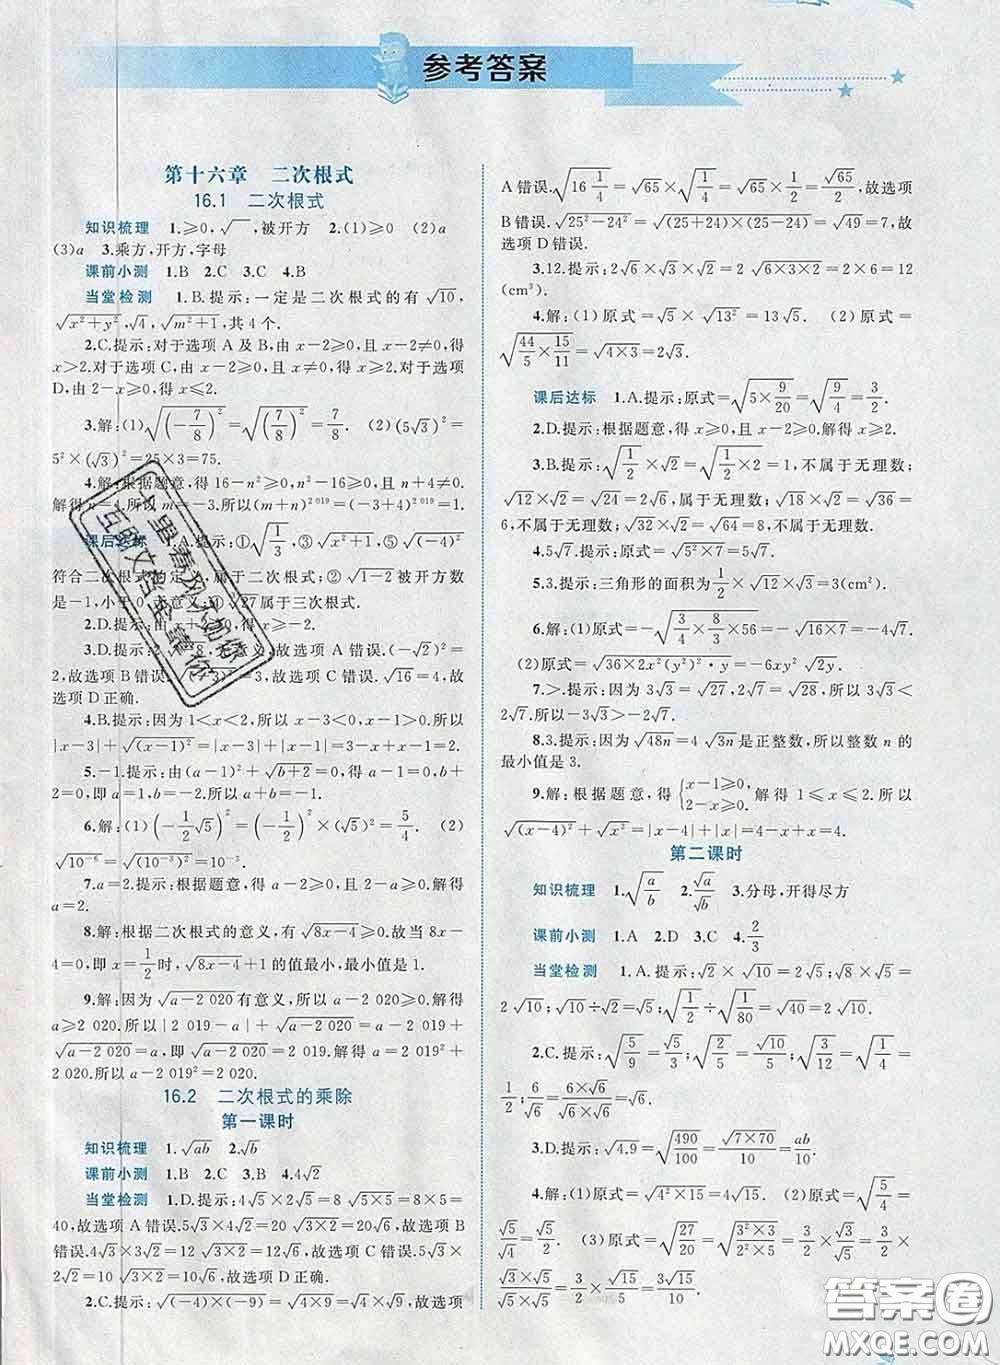 参考答案
第十六章 二次根式
16.1 二次根式
知识梳理 1.≥0,√ ,被开方 2.(1)≥0 (2)a
(3)a 3.乘方,开方,字母
课前小测 1.B 2.C 3.C 4.B
当堂检测 1.B.提示:一定是二次根式的有√10,
√(x²+y²),√4,√(m²+1),共4个.
2.C.提示:对于选项A及B,由x-2≥0,且x-2≠0,得
x>2.对于选项C,由x-2≥0,且x≠0,得x≥2.对于选项
D,由2-x≥0,得x≤2.
3.解:(1)√((-7/8)²)=√((7/8)²)=7/8. (2)(5√3)²=
5²×(√3)²=25×3=75.
4.解:根据题意,得16-n²≥0,n²-16≥0,且n+4≠0.
解得n=4.所以m=-3.所以(m+n)^2 019=(-3+4)^2 019=1.
课后达标 1.A.提示:①√(1/3),③√(x²+1),⑤√((-4)²)
符合二次根式的定义,属于二次根式;②√(1-2)被开方数
是-1,小于0,无意义;④∛27属于三次根式.
2.D.提示:由x+2≥0,得x≥-2.
3.D.提示: 故选项A错误.(-√2)²=
2,故选项B错误. =3,故选项C错误.√16=4,故
选项D正确.
4.B.提示:因为1<x<2,所以x-3<0,x-1>0.所以
|x-3|+√((x-1)²)=|x-3|+|x-1|=3-x+x-1=2.
5.-1.提示:由(a-1)²+√(b+2)=0,得a-1=0,b+2
=0,即a=1,b=-2.所以a+b=1-2=-1.
6.解:(1)(-1/2√5)²=(-1/2)²×(√5)²=5/4. (2)
√(10⁻⁶)=√((10⁻³)²)=10⁻³.
7.a=2.提示:根据题意,得a-2≥0,且2-a≥0.解得
a=2.
8.解:根据二次根式的意义,有√(8x-4)≥0.故当8x-
4=0,即x=1/2时,√(8x-4)+1的值最小,最小值是1.
9.解:因为√(a-2 020)有意义,所以a-2 020≥0.解得
a≥2 020.所以|2 019-a|+√(a-2 020)=a-2 019+
√(a-2 020)=a,即√(a-2 020)=2 019.所以a=2 019²+
2 020.所以a-2 019²=2 019²+2 020-2 019²=2 020.
16.2 二次根式的乘除
第一课时
知识梳理 1.√(ab) 2.√b
课前小测 1.B 2.C 3.B 4.4√2
当堂检测 1.D.提示:4√5×2√5=8√(5×5)=8×5=
40,故选项A错误.5√3×4√2=20√(3×2)=20√6,故选项B
错误.4√3×3√2=12√(3×2)=12√6,故选项C错误.5√3×
2√2=10√(3×2)=10√6,故选项D正确.
2.C.提示:√((-4)×(-9))=√(4×9)=2×3=6,故选项
A错误.√(16 1/4)=√65×√(1/4)=√65×1/2=√65/2,故选项
B错误.√(25²-24²)=√((25+24)×(25-24))=√49=7,故
选项D错误.
3.12.提示:2√6×√3×√2=2√(6×3×2)=2×6=12
(cm³).
4.解:(1)原式=√5×√(13²)=13√5. (2)原式=
√(44/5×15/11)=√(4×3)=2√3.
课后达标 1.A.提示:原式=√(5×9/20)=√(9/4)=3/2.
2.D.提示:根据题意,得x≥0,且x-2≥0.解得x≥2.
3.B.提示:√(1/2)×√2=√(1/2×2)=1,不属于无理数;
√12×√2=√24=2√6,属于无理数;√18×√2=√36=
6,不属于无理数;√32×√2=√64=8,不属于无理数.
4.5√7.提示:原式=√(5²×7)=5√7.
5.3.提示:三角形的面积为1/2×√12×√3=3(cm²).
6.解:(1)原式=-√(3/4×8/3×56)=-√(16×7)=-4√7.
(2)原式=√(36×2x²(y²)²·y)=-6xy²√(2y).
7.>.提示:因为3√3=√27,2√7=√28,所以3√3<
2√7.所以-3√3>-2√7.
8.3.提示:因为√(48n)=4√(3n)是正整数,所以整数n的
最小值是3.
9.解:根据题意,得{x-1≥0,2-x≥0.解得1≤x≤2.所以
√((x-4)²)+√(x²)=|x-4|+|x|=4-x+x=4.
第二课时
知识梳理 1.√(a/b) 2.√a/√b 3.分母,开得尽方
课前小测 1.A 2.D 3.C 4.2/3
当堂检测 1.A.提示:√2×√10=2√5;√8×√5=
2√10;√10÷√2=√5;√(1/2)÷√(1/80)=√40=2√10.
2.C.提示:√(5/9)=√5/3;√(2/5)=√10/5;√(2/8)=√(1/4)=
1/2;6/√6=(6×√6)/(√6×√6)=√6.
3.D.提示:√4.9=√(490/100)=√(7×70)/10=ab/10.
4.解:(1)原式=√(4²×15)=4√15. (2)原式=√(5/4)=
√5/√4=√5/2. (3)原式=√(27/20)=√((3²×3)/(2²×5))=3/2×√(3/5)=
3/2×√15/5=3√15/10.
答案圈
MXQE.COM